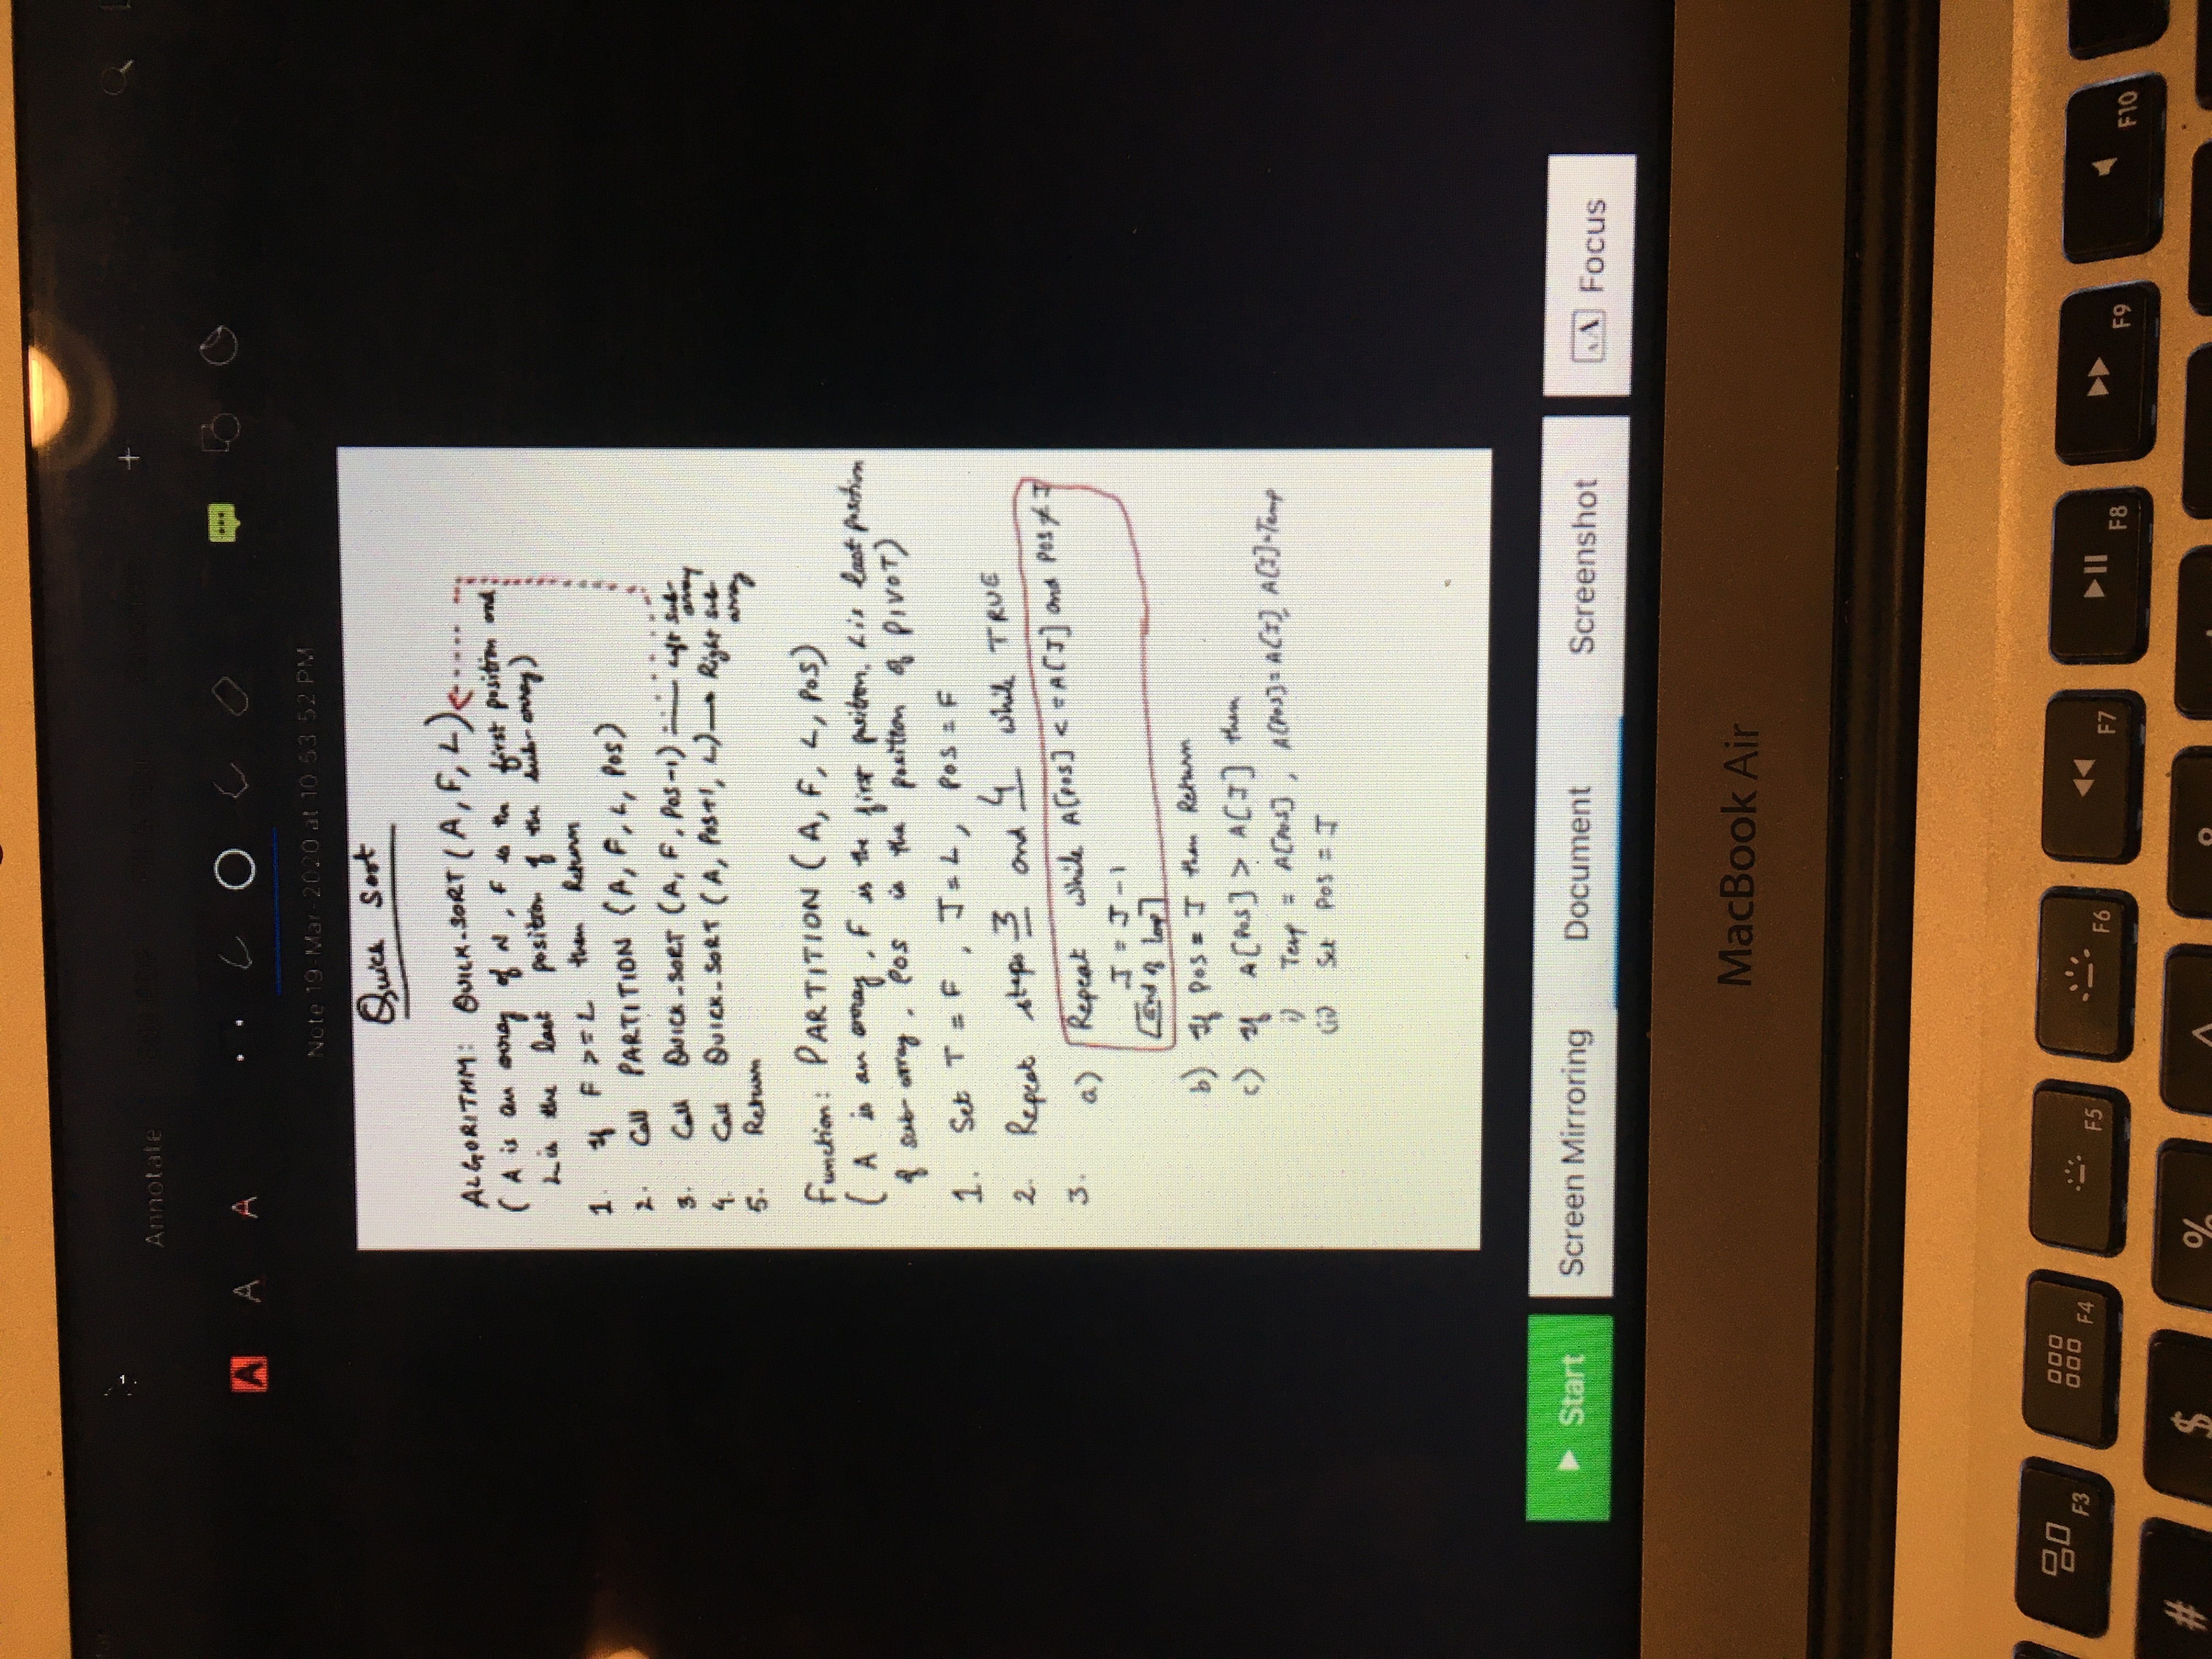 Annotate
+
A A A
Note 19-Mar-2020 at 10 53 52 PM
Quick Sort
ALGORITHM: QUICK-SORT (A, F, L)
( A is an array of N, F is the first position and
L is the last position of the sub-array)
1. If F >= L then Return
2. Call PARTITION (A, F, L, POS)
3. Call QUICK-SORT (A, F, POS-1) left sub-
array
4. Call QUICK-SORT (A, POS+1, L) → Right sub
array
5. Return
Function: PARTITION (A, F, L, POS)
( A is an array, F is the first position, L is last position
of sub-array, POS is the position of PIVOT)
1. Set I = F, J = L, POS = F
2. Repeat steps 3 and 4 while TRUE
3. a) Repeat while A[POS] <= A[J] and POS ≠ J
J = J - 1
[End of loop]
b) If POS = J then Return
c) If A[POS] > A[J] then
i) Temp = A[POS], A[POS] = A[J], A[J] = Temp
(ii) Set POS = J
Start Screen Mirroring Document Screenshot AA Focus
MacBook Air
F3 F4 F5 F6 F7 F8 F9 F10
# $ %